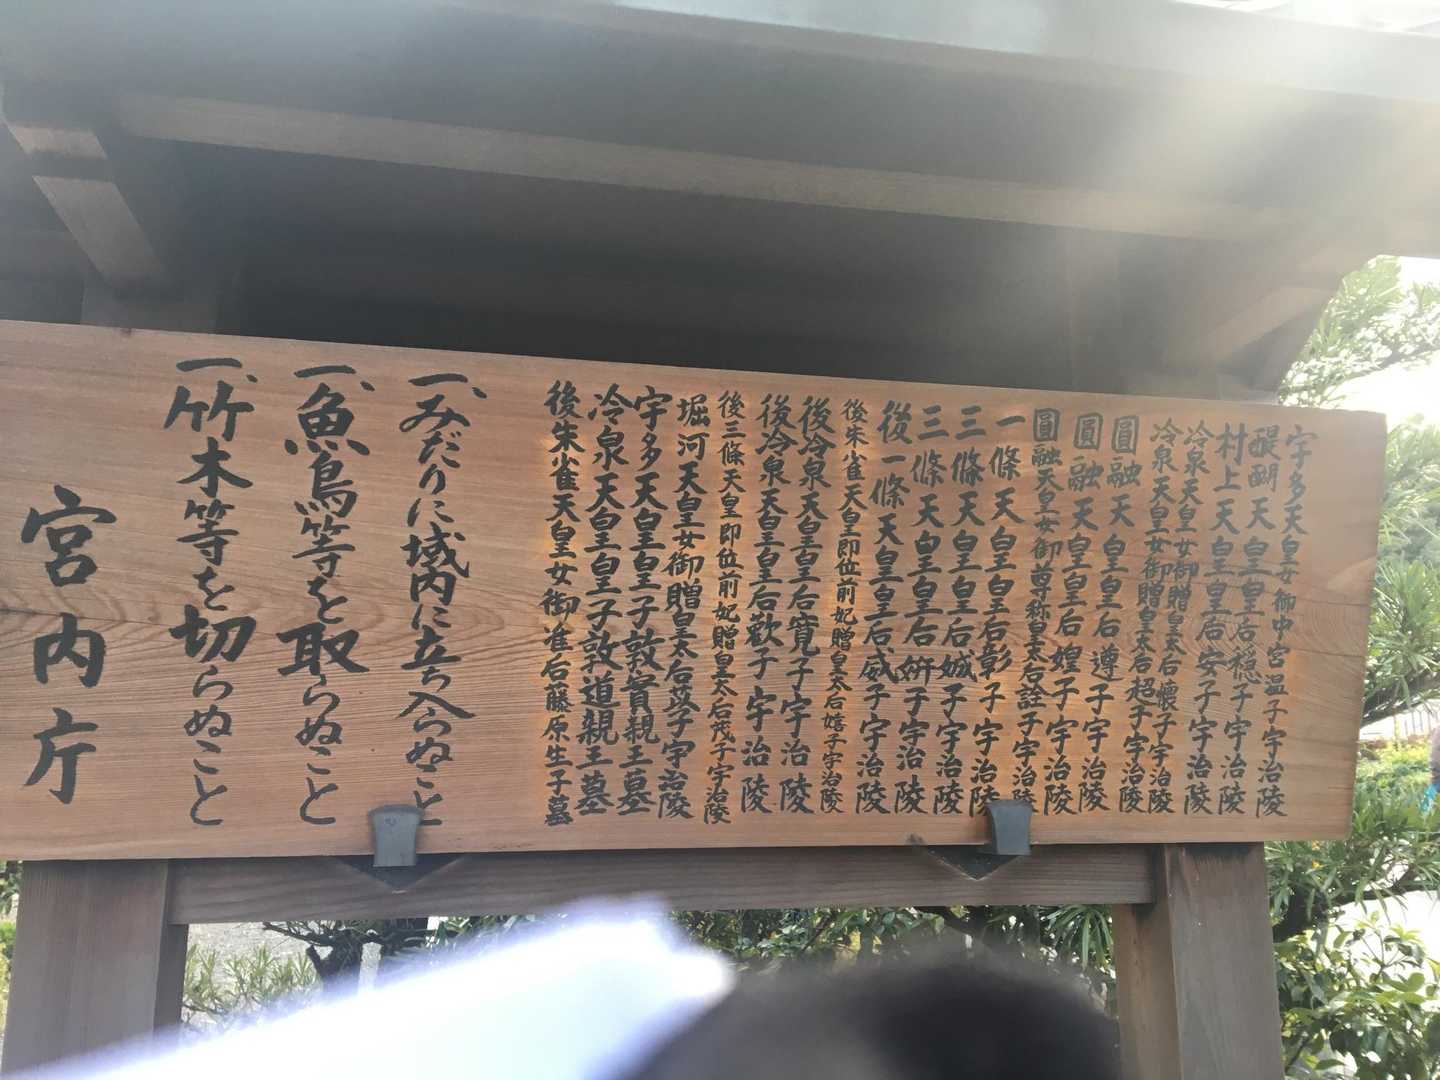 宇多天皇女御中宮温子宇治陵
醍醐天皇皇后穏子宇治陵
村上天皇皇后安子宇治陵
冷泉天皇女御贈皇太后懐子宇治陵
冷泉天皇女御贈皇太后超子宇治陵
圓融天皇皇后遵子宇治陵
圓融天皇皇后媓子宇治陵
圓融天皇女御尊称皇太后詮子宇治陵
一條天皇皇后彰子宇治陵
三條天皇皇后娍子宇治陵
三條天皇皇后妍子宇治陵
後一條天皇皇后威子宇治陵
後朱雀天皇即位前妃贈皇太后嬉子宇治陵
後冷泉天皇皇后寛子宇治陵
後冷泉天皇皇后歡子宇治陵
後三條天皇即位前妃贈皇太后茂子宇治陵
堀河天皇女御贈皇太后苡子宇治陵
宇多天皇皇子敦實親王墓
冷泉天皇皇子敦道親王墓
後朱雀天皇女御准后藤原生子墓
一、みだりに域内に立ち入らぬこと
一、魚鳥等を取らぬこと
一、竹木等を切らぬこと
宮内庁